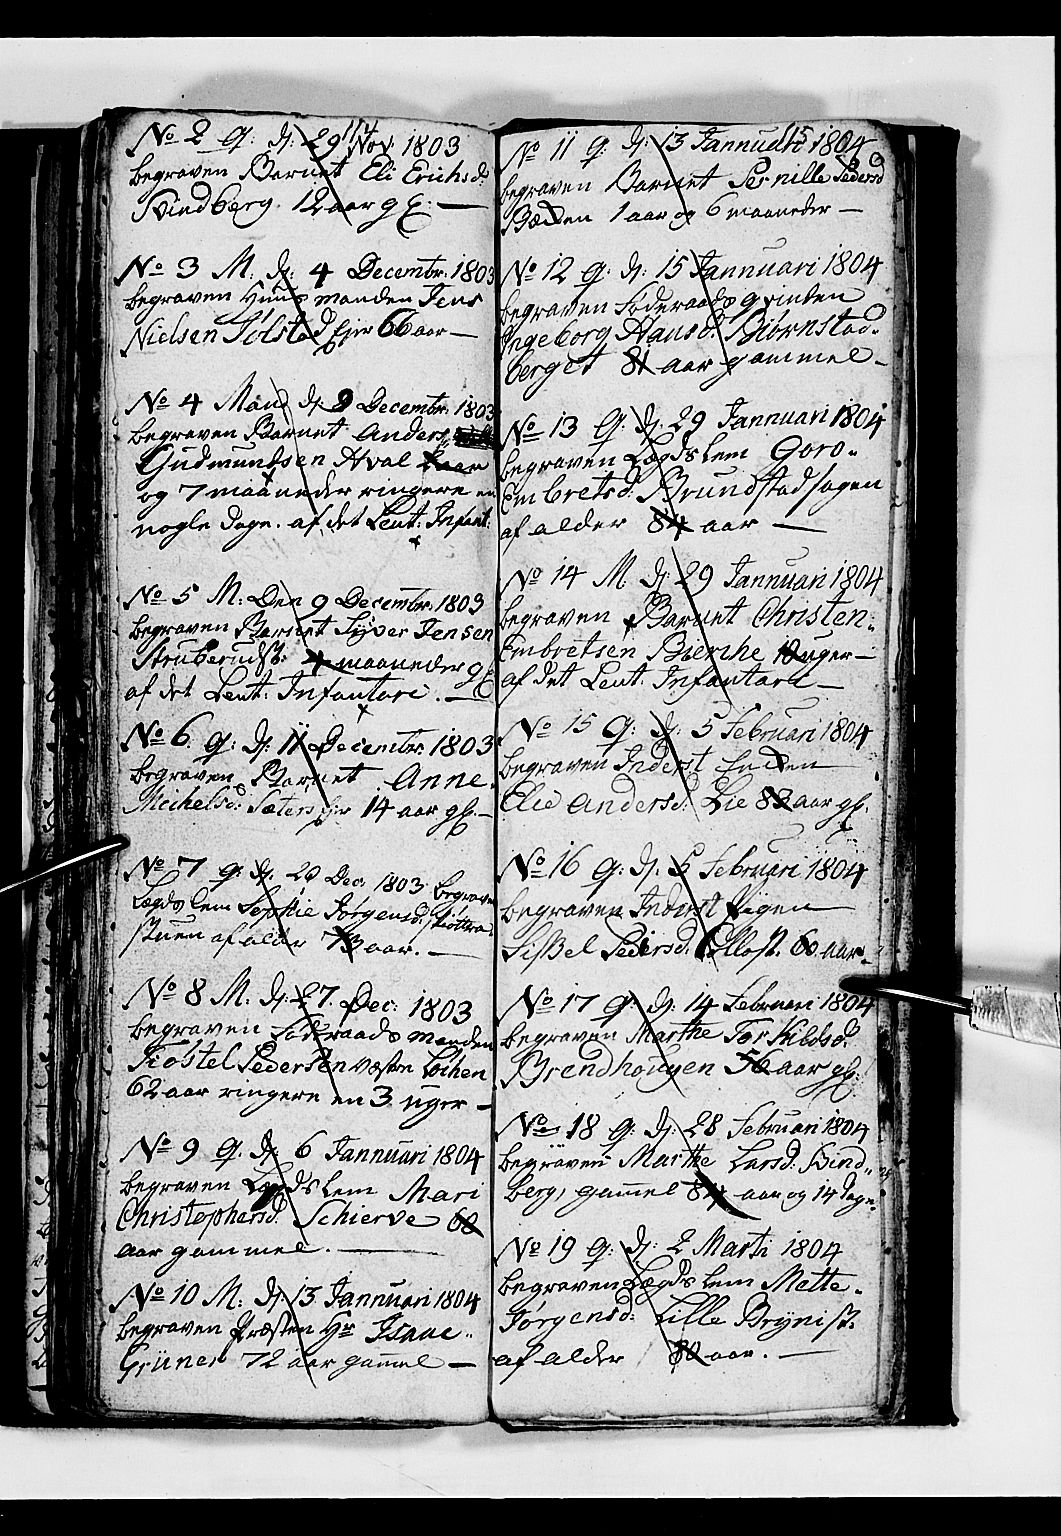 114
No 2 Q: d: 29 Nov: 1803
begraven Barnet Eli Erichsd:
Svindberg. 12 aar gl: —
No 3 M: d: 4 Decembr: 1803
begraven Huus manden Jens
Nielsen Jølstad Ejer 66 aar —
No 4 Mand d: 9 Decembr: 1803
begraven Barnet Anders
Gudmundsen Hval aar
og 7 maaneder ringere en
nogle dage. af det Leut: Infant:
No 5 M: Den 9 Decembr: 1803
begraven Barnet Syver Jensen
Struberudst: 4 maaneder gl
af det Leut: Infantari. —
No 6. Q: d: 11 Decembr 1803
begraven Barnet Anne
Michelsd: Sæters Ejer 14 aar gl. —
No 7 Q: d: 20 Dec: 1803 begraven
Lægds lem Sophie Jørgensd:
stuen af alder 73 aar. —
No 8 M: d: 27. Dec: 1803
begraven Føderaads manden
Kiøstel Pedersen væstre Lochen
62 aar ringere en 3 uger —
No 9 Q. d: 6 Jannuari 1804
begraven Lægds lem Mari
Christophersd: Schierve 60
aar gammel. —
No 10 M: d: 13 Jannuari 1804
begraven Præsten Hr Isaac
Grüner 72 aar gamel —
115
No 11 Q: d: 13 Jannuari 1804
begraven Barnet Pernille Pedersd
Bæcken 1 aar og 6 maaneder —
No 12 Q: d: 15 Jannuari 1804
begraven Føderaads qvinden
Ingeborg Hansd: Biørnstad-
berget 81 aar gammel —
No 13 Q: d: 29 Jannuari 1804
begraven Lægds lem Goro
Embretsd: Brundstadhagen
af alder 84 aar —
No 14 M. d: 29 Jannuari 1804
begraven Barnet Christen
Embretsen Bierche 10 uger —
af det Leut: Infantari —
No 15 Q: d: 5 Februari 1804
begraven Inderst Enken
Elie Andersd: Lie 83 aar gl.
No 16 Q: d: 5 Februari 1804
begraven Inderst Pigen
Sißel Pedersd: 60 aar —
No 17 Q: d: 14 Februari 1804
begraven Marthe Torkildsd:
Brendhougen 56 aar gl.
No 18 Q: d: 28 Februari 1804
begraven Marthe Larsd: Svind-
berg, gamel 84 aar og 14 dage
No 19 Q: d: 2 Marti 1804
begraven Lægds lem Mette
Jørgensd: Lille Brÿnist.
af alder 80 aar. —